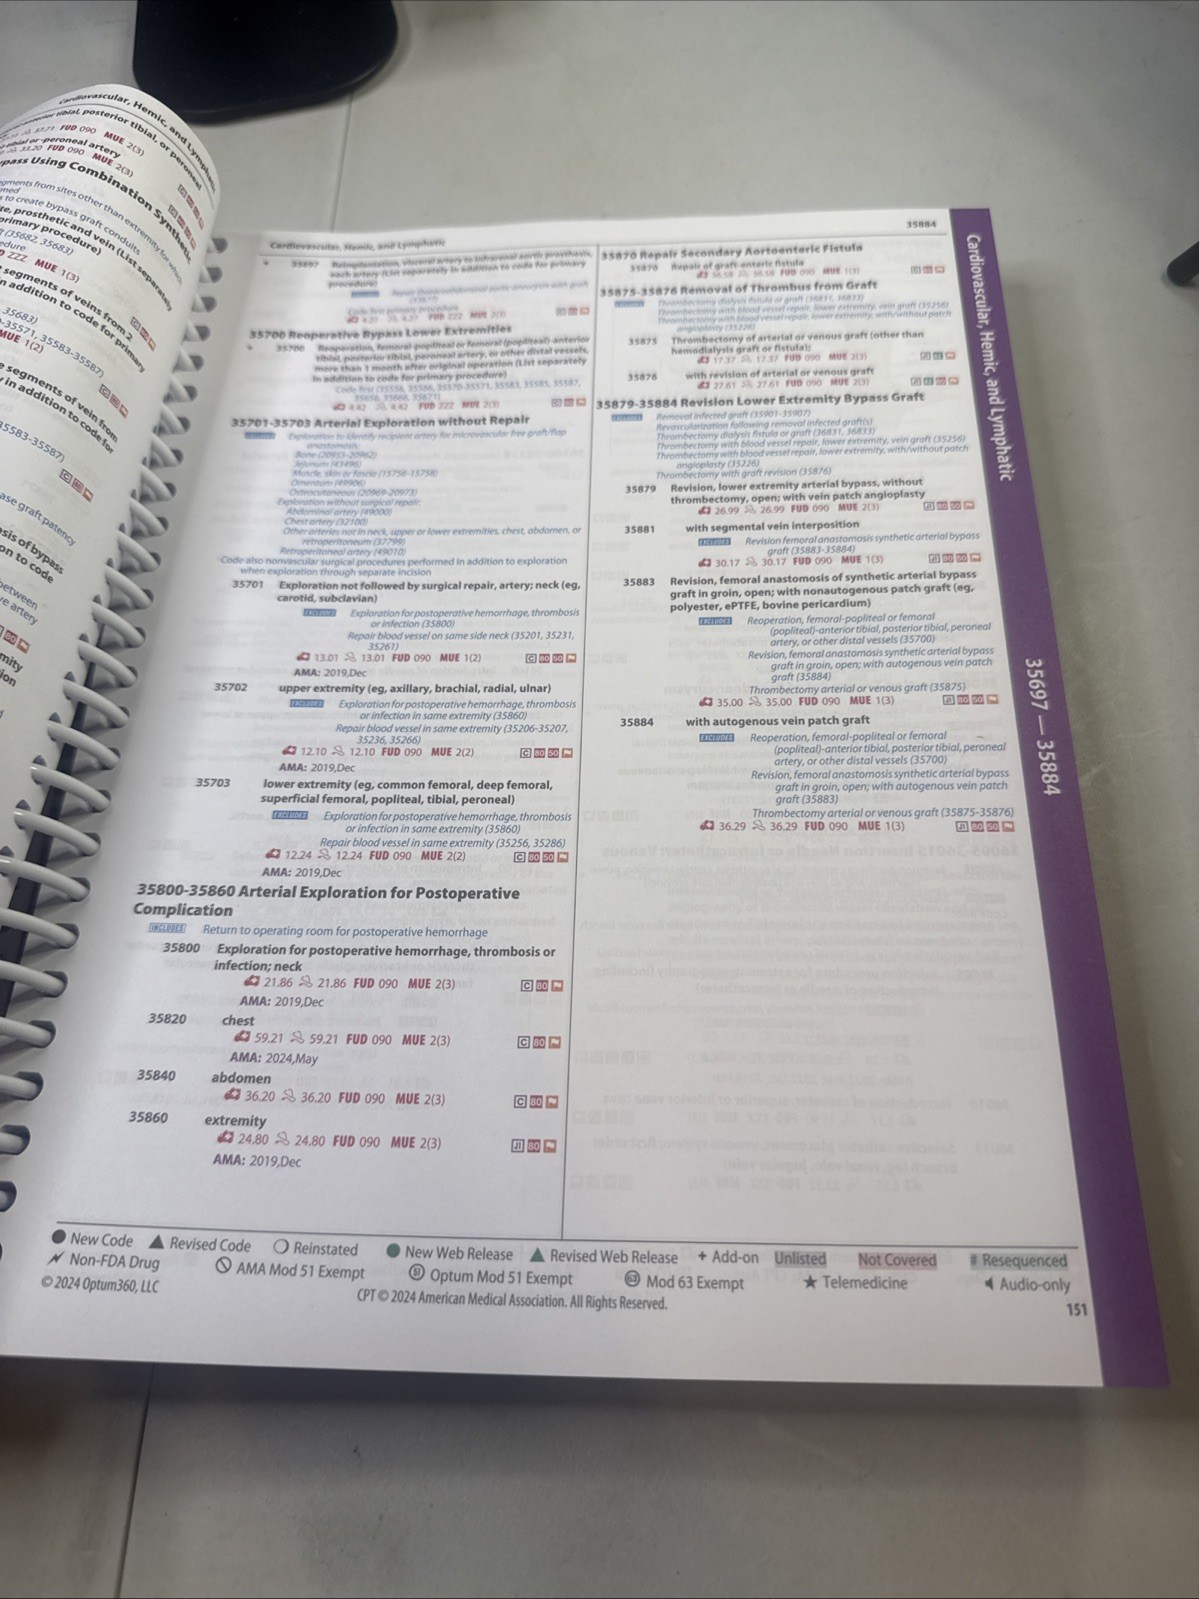 Cardiovascular, Hemic, and Lymphatic
posterior tibial, or peroneal
FUD 090 MUE 2(3)
tibial or -peroneal artery
33.20 FUD 090 MUE 2(3)
pass Using Combination Synthetic
segments from sites other than extremity for which
to create bypass graft conduits
te, prosthetic and vein (List separately
primary procedure)
(35682, 35683)
ZZZ MUE 1(3)
segments of veins from 2
n addition to code for primary
35683)
-35571, 35583-35587)
MUE 1(2)
e segments of vein from
in addition to code for
35583-35587)
ase graft patency
sis of bypass
on to code
between
re artery
Cardiovascular, Hemic, and Lymphatic
+ 35697 Reimplantation, visceral artery to infrarenal aortic prosthesis,
each artery (List separately in addition to code for primary
procedure)
Code first primary procedure
4.27 4.27 FUD ZZZ MUE 2(3)
35700 Reoperative Bypass Lower Extremities
+ 35700 Reoperation, femoral-popliteal or femoral (popliteal)-anterior
tibial, posterior tibial, peroneal artery, or other distal vessels,
more than 1 month after original operation (List separately
in addition to code for primary procedure)
Code first (35556, 35566, 35570-35571, 35583, 35585, 35587,
35656, 35666, 35671)
4.42 4.42 FUD ZZZ MUE 2(3)
35701-35703 Arterial Exploration without Repair
EXCLUDES Exploration to identify recipient artery for microvascular free graft/flap
anastomosis:
Bone (20955-20962)
Jejunum (43496)
Muscle, skin or fascia (15756-15758)
Omentum (49906)
Osteocutaneous (20969-20973)
Exploration without surgical repair:
Abdominal artery (49000)
Chest artery (32100)
Other arteries not in neck, upper or lower extremities, chest, abdomen, or
retroperitoneum (37799)
Retroperitoneal artery (49010)
Code also nonvascular surgical procedures performed in addition to exploration
when exploration through separate incision
35701 Exploration not followed by surgical repair, artery; neck (eg,
carotid, subclavian)
EXCLUDES Exploration for postoperative hemorrhage, thrombosis
or infection (35800)
Repair blood vessel on same side neck (35201, 35231,
35261)
13.01 13.01 FUD 090 MUE 1(2) C 80 50
AMA: 2019,Dec
35702 upper extremity (eg, axillary, brachial, radial, ulnar)
EXCLUDES Exploration for postoperative hemorrhage, thrombosis
or infection in same extremity (35860)
Repair blood vessel in same extremity (35206-35207,
35236, 35266)
12.10 12.10 FUD 090 MUE 2(2) C 80 50
AMA: 2019,Dec
35703 lower extremity (eg, common femoral, deep femoral,
superficial femoral, popliteal, tibial, peroneal)
EXCLUDES Exploration for postoperative hemorrhage, thrombosis
or infection in same extremity (35860)
Repair blood vessel in same extremity (35256, 35286)
12.24 12.24 FUD 090 MUE 2(2) C 80 50
AMA: 2019,Dec
35800-35860 Arterial Exploration for Postoperative
Complication
INCLUDES Return to operating room for postoperative hemorrhage
35800 Exploration for postoperative hemorrhage, thrombosis or
infection; neck
21.86 21.86 FUD 090 MUE 2(3) C 80
AMA: 2019,Dec
35820 chest
59.21 59.21 FUD 090 MUE 2(3) C 80
AMA: 2024,May
35840 abdomen
36.20 36.20 FUD 090 MUE 2(3) C 80
35860 extremity
24.80 24.80 FUD 090 MUE 2(3) J1 80
AMA: 2019,Dec
35884
35870 Repair Secondary Aortoenteric Fistula
35870 Repair of graft-enteric fistula
36.58 36.58 FUD 090 MUE 1(3)
35875-35876 Removal of Thrombus from Graft
EXCLUDES Thrombectomy dialysis fistula or graft (36831, 36833)
Thrombectomy with blood vessel repair, lower extremity, vein graft (35256)
Thrombectomy with blood vessel repair, lower extremity, with/without patch
angioplasty (35226)
35875 Thrombectomy of arterial or venous graft (other than
hemodialysis graft or fistula);
17.37 17.37 FUD 090 MUE 2(3)
35876 with revision of arterial or venous graft
27.61 27.61 FUD 090 MUE 2(3)
35879-35884 Revision Lower Extremity Bypass Graft
EXCLUDES Removal infected graft (35901-35907)
Revascularization following removal infected graft(s)
Thrombectomy dialysis fistula or graft (36831, 36833)
Thrombectomy with blood vessel repair, lower extremity, vein graft (35256)
Thrombectomy with blood vessel repair, lower extremity, with/without patch
angioplasty (35226)
Thrombectomy with graft revision (35876)
35879 Revision, lower extremity arterial bypass, without
thrombectomy, open; with vein patch angioplasty
26.99 26.99 FUD 090 MUE 2(3) J1 80 50
35881 with segmental vein interposition
EXCLUDES Revision femoral anastomosis synthetic arterial bypass
graft (35883-35884)
30.17 30.17 FUD 090 MUE 1(3) J1 80 50
35883 Revision, femoral anastomosis of synthetic arterial bypass
graft in groin, open; with nonautogenous patch graft (eg,
polyester, ePTFE, bovine pericardium)
EXCLUDES Reoperation, femoral-popliteal or femoral
(popliteal)-anterior tibial, posterior tibial, peroneal
artery, or other distal vessels (35700)
Revision, femoral anastomosis synthetic arterial bypass
graft in groin, open; with autogenous vein patch
graft (35884)
Thrombectomy arterial or venous graft (35875)
35.00 35.00 FUD 090 MUE 1(3) J1 80 50
35884 with autogenous vein patch graft
EXCLUDES Reoperation, femoral-popliteal or femoral
(popliteal)-anterior tibial, posterior tibial, peroneal
artery, or other distal vessels (35700)
Revision, femoral anastomosis synthetic arterial bypass
graft in groin, open; with autogenous vein patch
graft (35883)
Thrombectomy arterial or venous graft (35875-35876)
36.29 36.29 FUD 090 MUE 1(3) J1 80 50
Cardiovascular, Hemic, and Lymphatic
35697 — 35884
● New Code ▲ Revised Code ○ Reinstated ● New Web Release ▲ Revised Web Release + Add-on Unlisted Not Covered # Resequenced
Non-FDA Drug AMA Mod 51 Exempt 51 Optum Mod 51 Exempt 63 Mod 63 Exempt ★ Telemedicine ◀ Audio-only
© 2024 Optum360, LLC
CPT © 2024 American Medical Association. All Rights Reserved.
151